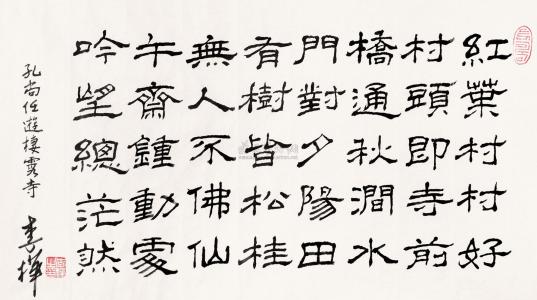 紅葉村村好
村頭即寺前
橋通秋澗水
門對夕陽田
有樹皆松桂
無人不佛仙
午齋鍾動處
吟望總茫然
孔尚任遊棲霞寺